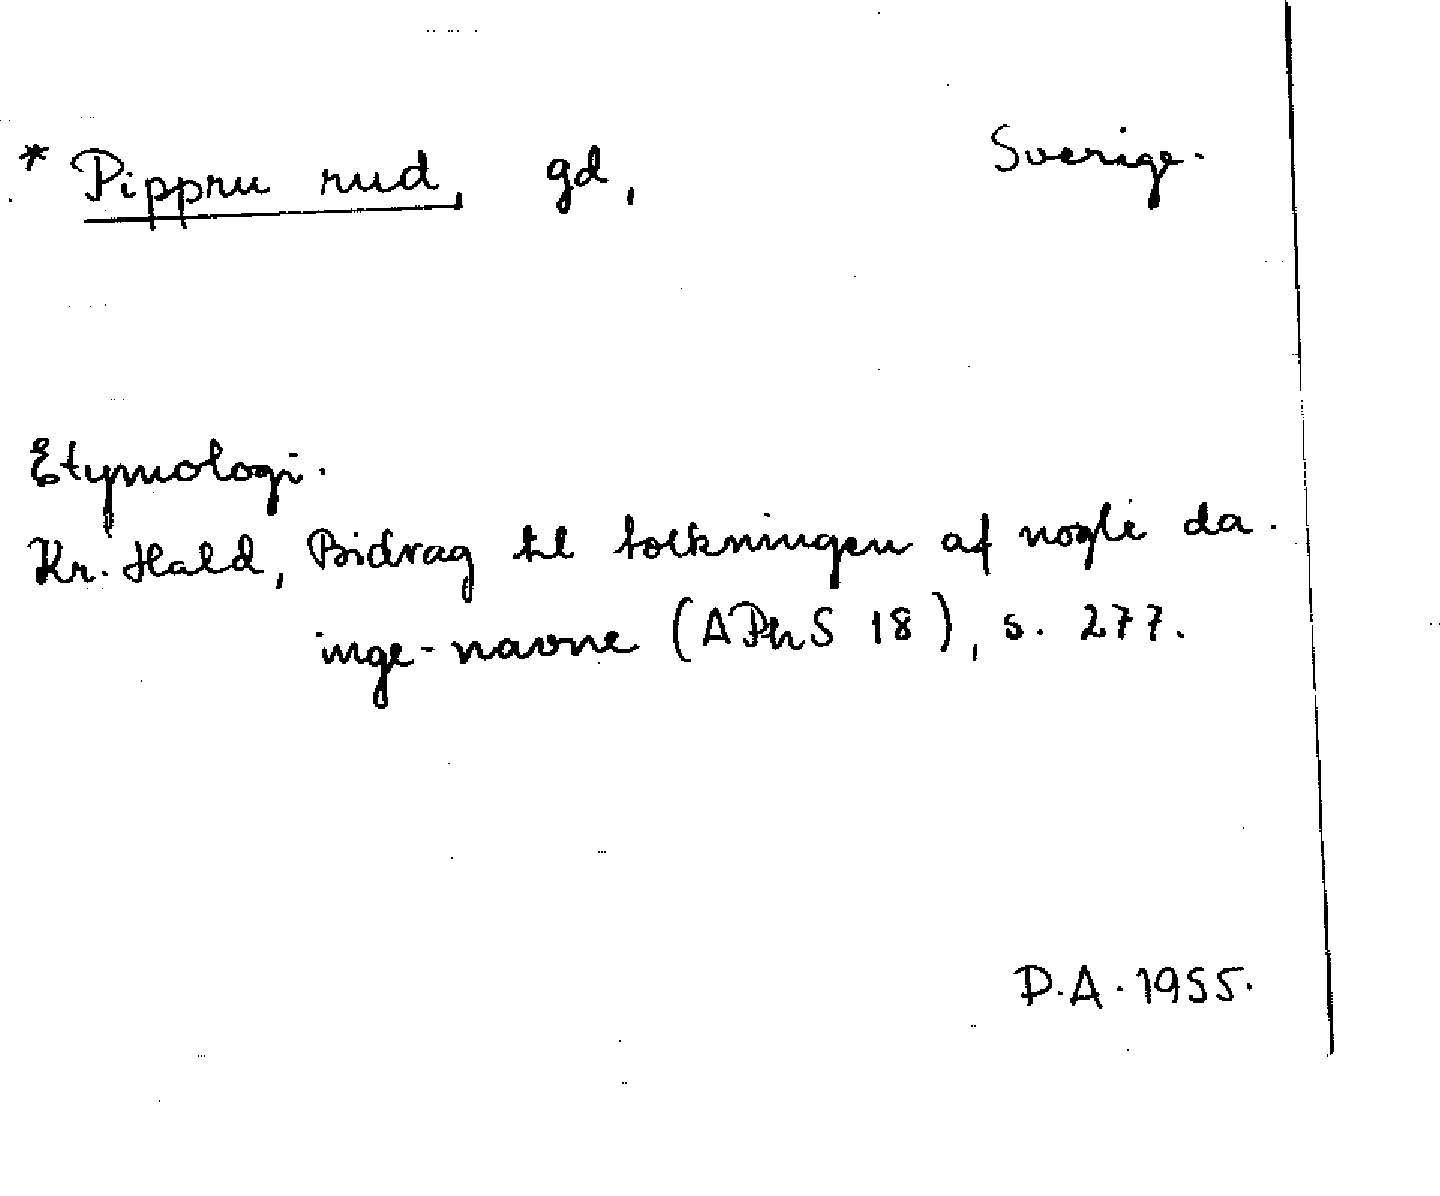 * Pippru rud, gd, Sverige.
Etymologi.
Kr. Hald, Bidrag til tolkningen af nogle da.
inge-navne (APhS 18), s. 277.
D.A. 1955.